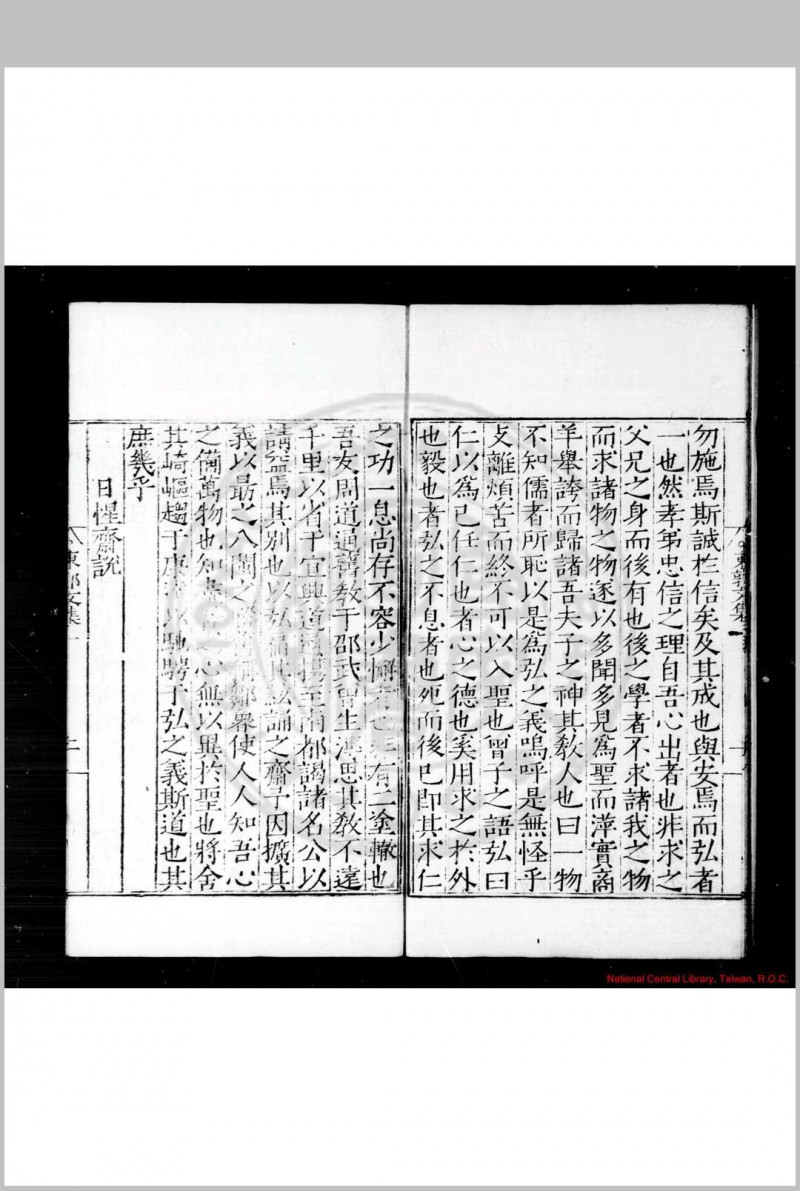 勿施焉斯誠於信矣及其成也與安焉而弘者
一也然孝弟忠信之理自吾心出者也非求之
父兄之身而後有也後之學者不求諸我之物
而求諸物之物逐以多聞多見為聖而萍實商
羊舉誇而歸諸吾夫子之神其教人也曰一物
不知儒者所恥以是為弘之義嗚呼是無怪乎
支離煩苦而終不可以入聖也曾子之語弘曰
仁以為己任仁也者心之德也奚用求之於外
也毅也者弘之不息者也死而後已即其求仁
之功一息尚存不容少懈者也非有二塗轍也
吾友周道通舊教于邵武曾生思其教不遠
千里以省于宜興道通攜至南都謁諸名公以
請益焉其別也以弘名其絃誦之齋予因擴其
義以最之八閩之稱鄒魯使人人知吾心
之備萬物也知心無以異於聖也將舍
其崎嶇趨于康以馳騁于弘之義斯道也其
庶幾乎
日惺齋說
東郭文集
東郭文集